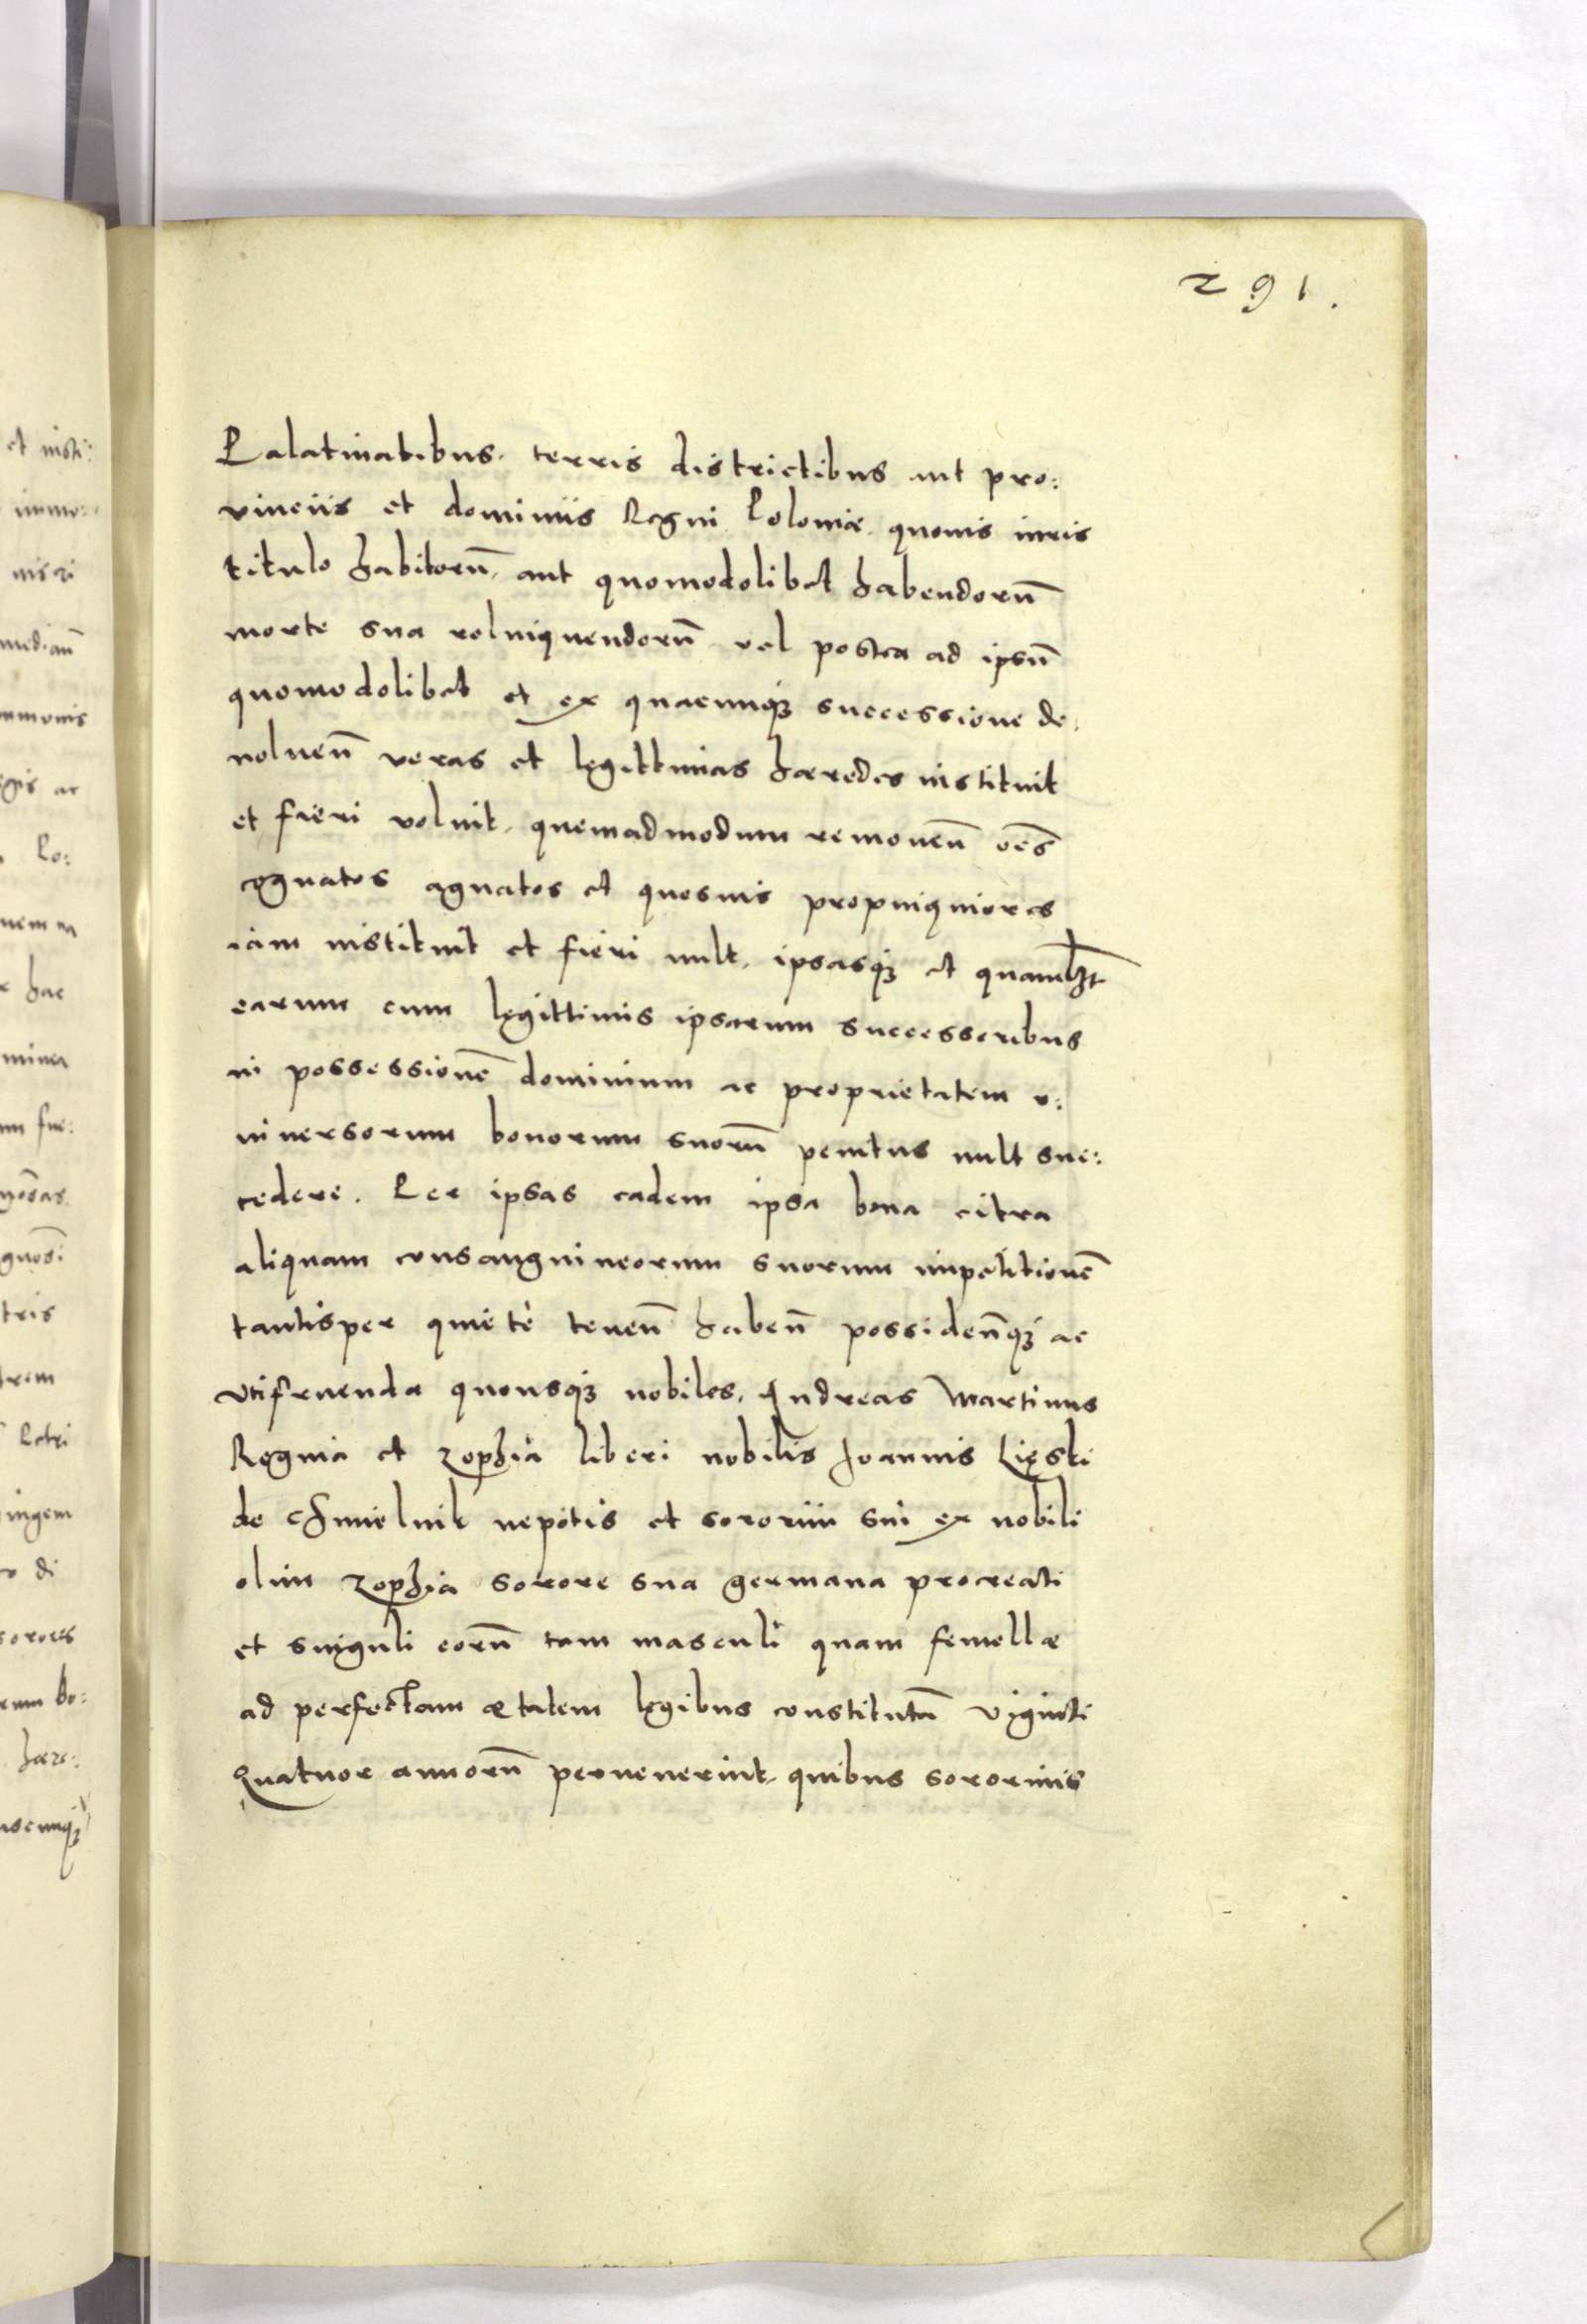 291.
Palatinatibus, terris districtibus aut pro:
vinciis et dominiis Regni Poloniæ quovis iuris
titulo habitorū, aut quomodolibet habendorū
morte sua relinquendorū vel postea ad ipsū
quomodolibet et ex quacunq3 successione de,
uoluen̄ veras et legittimas hæredes instituit
et fieri voluit, quemadmodum remouen̄ oēs
cognatos agnatos et quosuis propinquiores
iam instituit et fieri uult, ipsasq3 et quamlȝt
earum cum legittimis ipsarum successoribus
in possessionē dominium ac proprietatem v:
niuersorum bonorum suorū penitus uult suc:
cedere. Per ipsas eadem ipsa bona citra
aliquam consanguineorum suorum impetitionē
tantisper quietè tenen̄ haben̄ possiden̄q3 ac
vtifruenda quousq3 nobiles, Andreas Martinus
Regina et Zophia liberi nobilis Joannis Lięski
de Chmielnik nepotis et sororiii sui ex nobili
olim Zophia sorore sua germana procreati
et singuli eorū tam masculi quam femellæ
ad perfectam ætatem legibus constitutā viginti
Quatuor annorū peruenerint, quibus sororiniis
et insti:
immo:
nis ri
mediam̄
mmonis
egis ac
Po:
nem in
hac
minia
um fue:
tris
trem
Petri
ingem
di
sorores
rum bo:
hære:
uscunq3